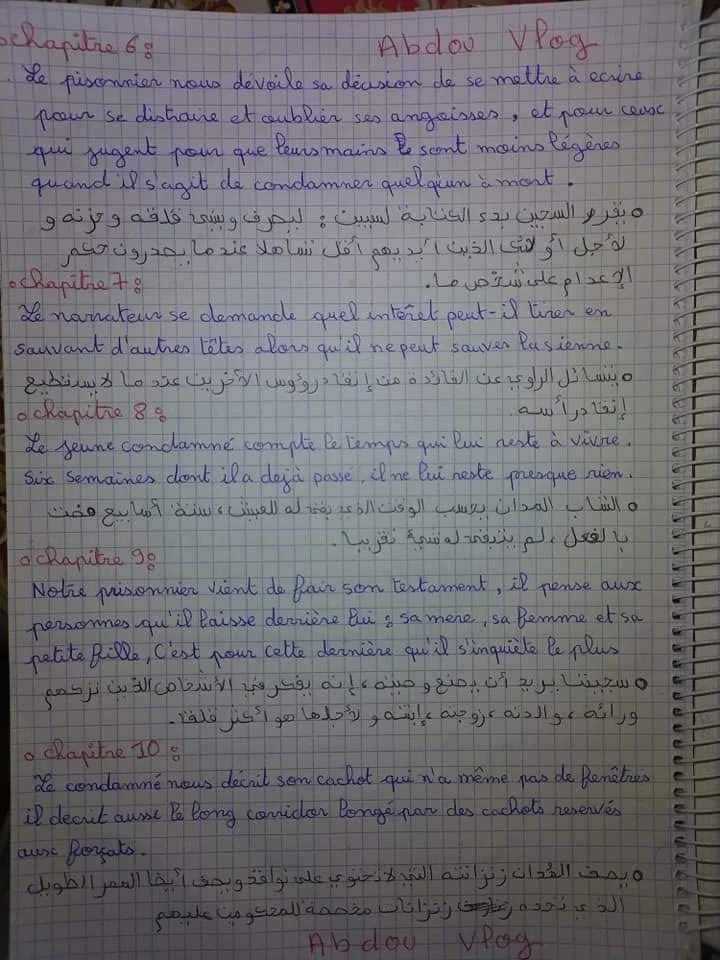 Chapitre 6: Abdou Vlog
Le pisonnier nous dévoile sa décision de se mettre à ecrire
pour se distraire et oublier ses angoisses, et pour ceux
qui jugent pour que leurs mains le sont moins légères
quand il s'agit de condamner quelqiun à mort.
يقرر السجين بدئ الكتابة لسببين: ليصرف وينسى قلقه وحزنه و
لأجل أولائك الذين أيديهم أقل تساهلا عندما يصدرون حكم
الإعدام على شخص ما.
Chapitre 7:
Le narrateur se demande quel intérêt peut-il tirer en
sauvant d'autres têtes alors qu'il ne peut sauver la sienne.
يتسائل الراوي عن الفائدة من إنقاذ رؤوس الآخرين عندما لا يستطيع
إنقاذ رأسه.
Chapitre 8:
Le jeune condamné compte le temps qui lui reste à vivre.
Six semaines dont il a dejà passé, il ne lui reste presque rien.
الشاب المدان يحسب الوقت الذي بقي له للعيش، ستة أسابيع مضت
بالفعل، لم يتبقى له شيء تقريبا.
Chapitre 9:
Notre prisonnier vient de fair son testament, il pense aux
personnes qu'il laisse derrière lui: sa mere, sa femme et sa
petite fille, C'est pour cette dernière qu'il s'inquiète le plus
سجيننا يريد أن يصنع وصيته، إنه يفكر في الأشخاص الذين تركهم
ورائه، والدته، زوجته، إبنته و لأجلها هو أكثر قلقا.
Chapitre 10:
Le condamné nous décrit son cachot qui n'a même pas de fenêtres
il décrit aussi le long corridor longé par des cachots reservés
aux forçats.
يصف المدان زنزانته التي لا تحتوي على نوافذ ويصف أيضا الممر الطويل
الذي تحده زنزانات مخصصة للمحكومين عليهم
Abdou Vlog